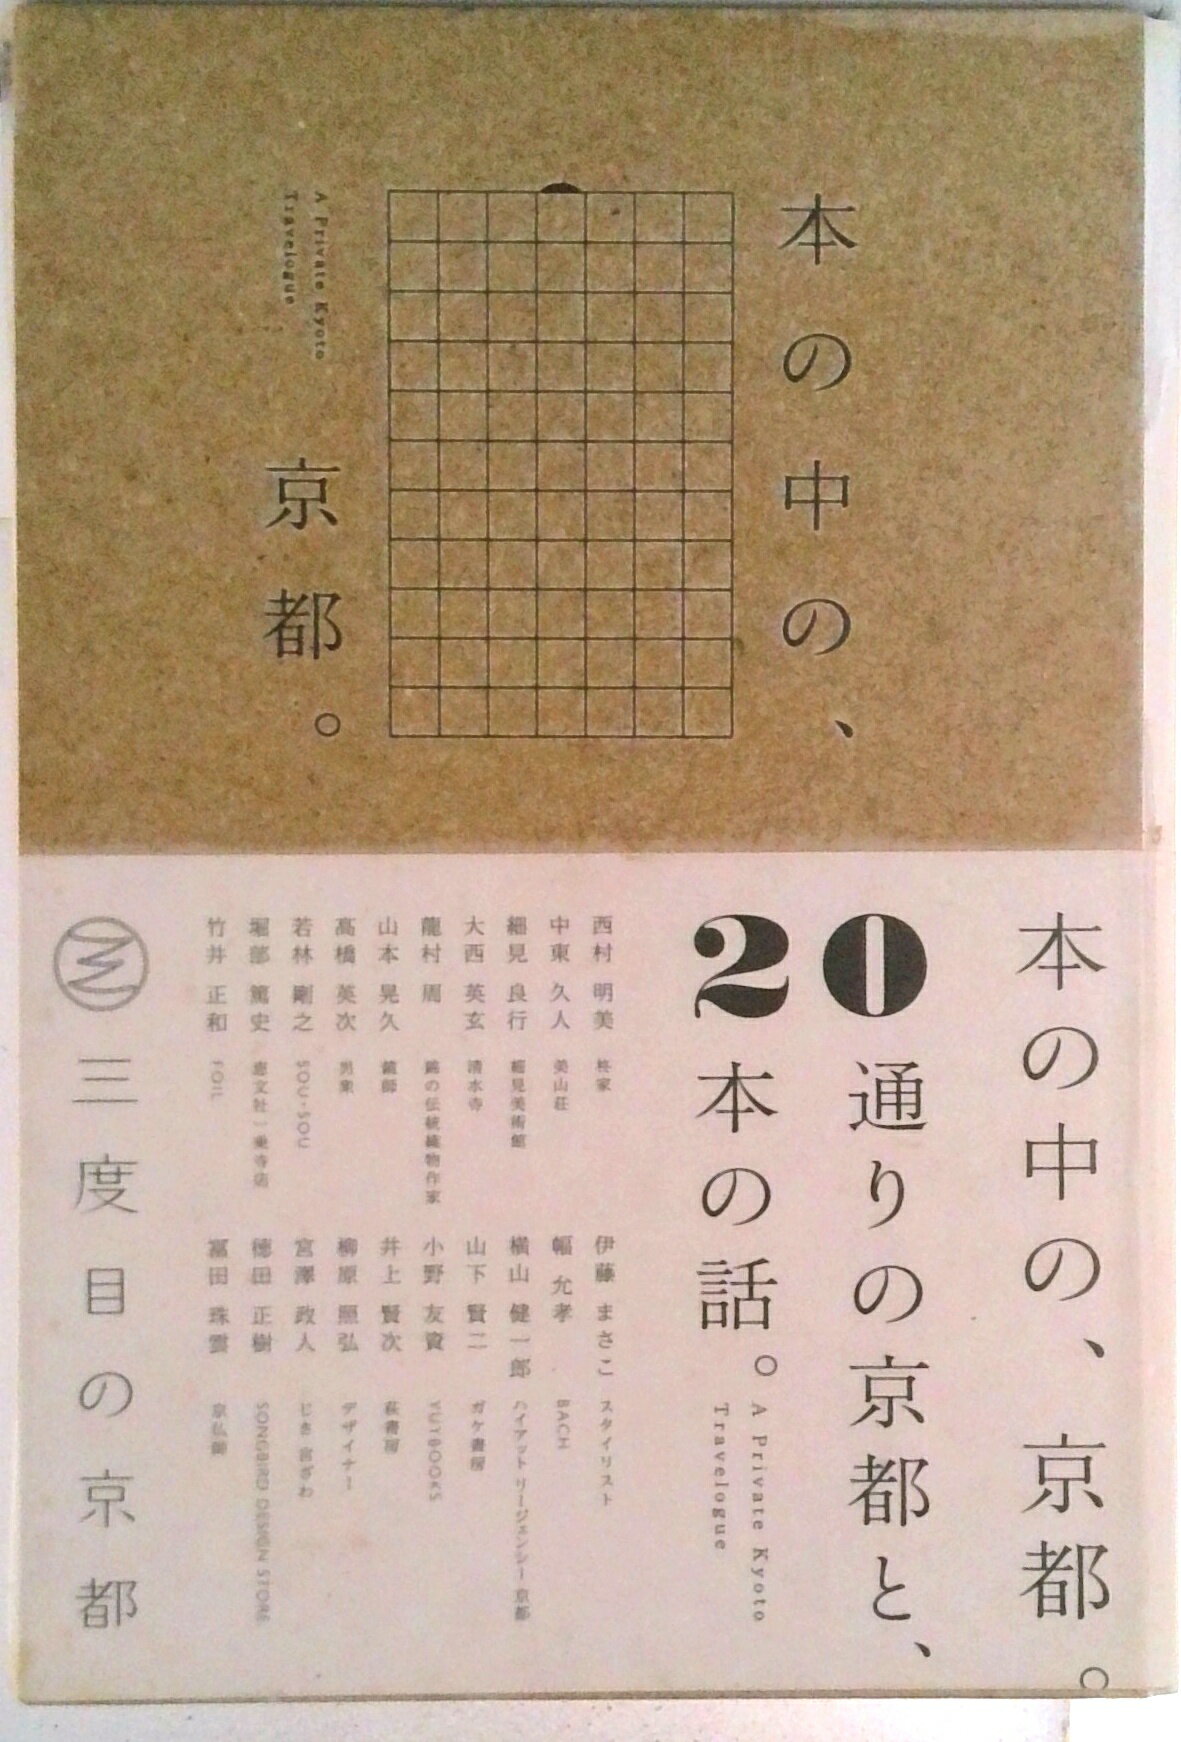 本の中の、
京都。
A Private Kyoto
Travelogue
本の中の、京都。
20通りの京都と、
2本の話。
A Private Kyoto
Travelogue
西村 明美 柊家
中東 久人 美山荘
細見 良行 細見美術館
大西 英玄 清水寺
龍村 周 錦の伝統織物作家
山本 晃久 鏡師
髙橋 英次 男衆
若林 剛之 SOU・SOU
堀部 篤史 恵文社一乗寺店
竹井 正和 FOIL
伊藤 まさこ スタイリスト
幅 允孝 BACH
横山 健一郎 ハイアット リージェンシー 京都
山下 賢二 ガケ書房
小野 友資 YUYBOOKS
井上 賢次 萩書房
柳原 照弘 デザイナー
宮澤 政人 じき 宮ざわ
徳田 正樹 SONGBIRD DESIGN STORE
冨田 珠雲 京仏師
三度目の京都